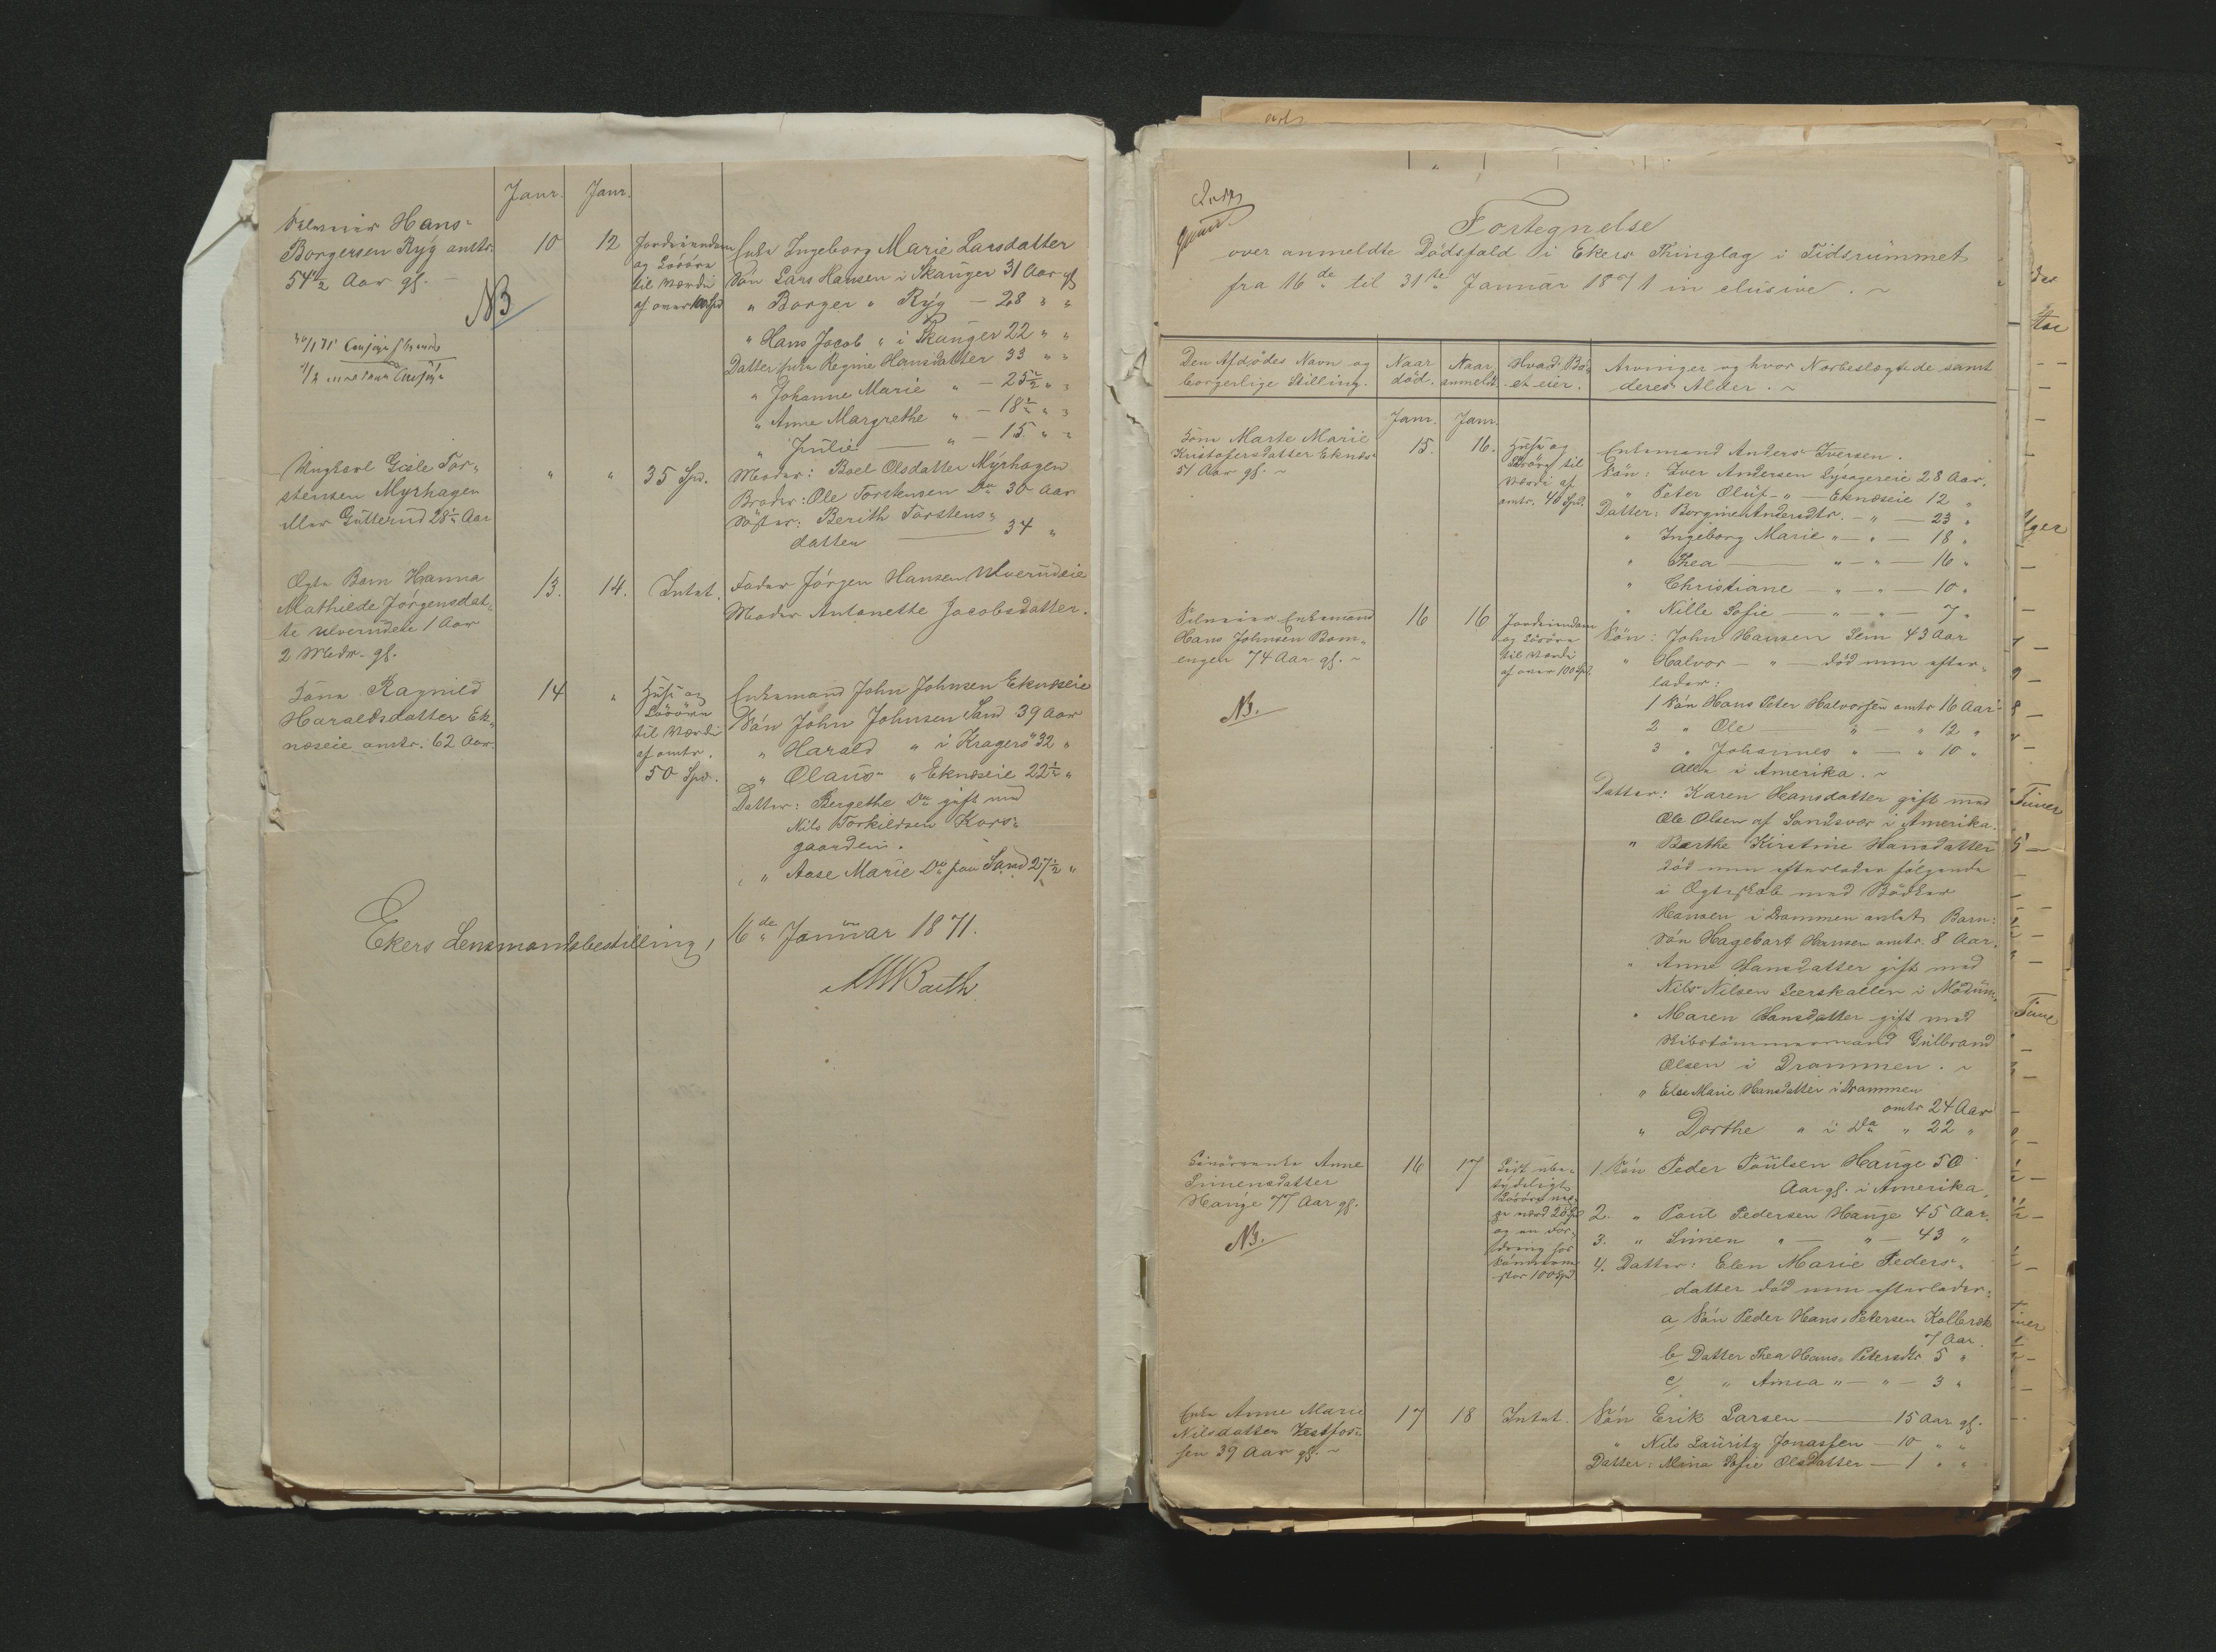 Janr. Janr.
Selveier Hans-
Borgersen Ryg omtr. 10 12 Jordeiendom Enke Ingeborg Marie Larsdatter
54 1/2 Aar gl. - og Løsøre Søn Lars Hansen i Skanger 31 Aar gl
NB til Værdi
af over 100 Spd " Borger " Ryg — 28 " "
" Hans Jacob " i Skanger 22 " "
Datter Enke Regine Hansdatter 33 " "
" Johanne Marie " — 25 1/2 " "
" Anne Margrethe " — 18 1/2 " "
" Julie — " — 15 " "
Ungkarl Gisle Tor- " " 35 Spd. Moder: Boel Olsdatter Myrhagen
stensen Myrhagen Broder: Ole Torstensen Do 30 Aar
eller Gutterud 28 1/2 Aar Søster: Berith Torstens-
datter — 34 "
Ægte Barn Hanna 13. 14. Intet. Fader Jørgen Hansen Ulverudeie
Mathilde Jørgensdat- Moder Antonette Jacobsdatter.
te Ulverudeie 1 Aar
2 Mdr. gl.
Kone Ragnild 14 " Huse og Enkemand John Johnsen Eknæseie
Haraldsdatter Ek- Løsøre Søn John Johnsen Sand 39 Aar
næseie omtr. 62 Aar. til Værdi " Harald " i Kragerø 32 "
af omtr. " Olaus " Eknæseie 22 1/2 "
50 Spd. Datter: Bergethe Do gift med
Nils Torkildsen Kors-
gaarden.
" Aase Marie Do paa Sand 27 1/2 "
Ekers Lensmandsbestilling, 16de Januar 1871.
Fortegnelse
over anmeldte Dødsfald i Ekers Thinglag i Tidsrummet
fra 16de til 31te Januar 1871 inclusive. ~
Den Afdødes Navn og Naar Naar Hvad Bo- Arvinger og hvor Nærbeslægtede samt
borgerlige Stilling. død. anmeldt. et eier. deres Alder. ~
Janr. Janr.
Kone Marte Marie 15. 16. Huse og Enkemand Anders Iversen.
Kristofersdatter Eknæs- Løsøre til Søn: Iver Andersen Lysagereie 28 Aar.
51 Aar gl. ~ Værdi af " Peter Oluf - " — Eknæseie 12 "
omtr. 40 Spd. Datter: Borgine Andersdtr. - " — 23 "
" Ingeborg Marie " - " — 18 "
" Thea — " - " — 16 "
" Christiane — " - " — 10 "
" Nille Sofie — " - " — 7 "
Selveier Enkemand 16 16 Jordeiendom Søn: John Hansen Sem 43 Aar
Hans Johnsen Bom- og Løsøre " Halvor — " — død men efter-
engen 74 Aar gl. ~ til Værdi lader:
af over 100 Spd.
NB. 1 Søn Hans Peter Halvorsen omtr 16 Aar
2 " Ole — " — " 12 "
3 " Johannes " — " 10 "
alle i Amerika. ~
Datter: Karen Hansdatter gift med
Ole Olsen af Sandsvær i Amerika.
" Berthe Kirstine Hansdatter
død men efterlader følgende
i Ægteskab med Bødker
Hansen i Drammen avlet Barn:
Søn Hagebart Hansen omtr. 8 Aar.
" Anne Hansdatter gift med
Nils Nilsen Leerskallen i Modum.
" Maren Hansdatter gift med
Skibstømmermand Gulbrand
Olsen i Drammen. ~
" Else Marie Hansdatter i Drammen
omtr 24 Aar
" Dorthe " i Do " 22 "
Anne 16 17 Lidt ube- 1. Søn Peder Poulsen Hauge 50
Simensdatter tydeligt Aar gl. i Amerika.
Hauge 77 Aar gl. Løsøre
NB. 2. " Poul Pedersen Hauge 45 Aar.
og en For- 3. " Simen " — " — 43 "
dring hos 4. Datter: Elen Marie Peders-
stor 100 Spd datter død men efterlader:
a, Søn Peder Hans Petersen Kolbræk
7 Aar
b, Datter Thea Hans Petersdtr 5 "
c, " Anna " — " — 3 "
Enke Anne Marie 17 18 Intet. Søn Erik Larsen — 15 Aar gl.
Nilsdatter Vestfos- " Nils Lauritz Jonassen — 10 " "
sen 39 Aar gl. ~ Datter: Mina Sofie Olsdatter — 1 " "